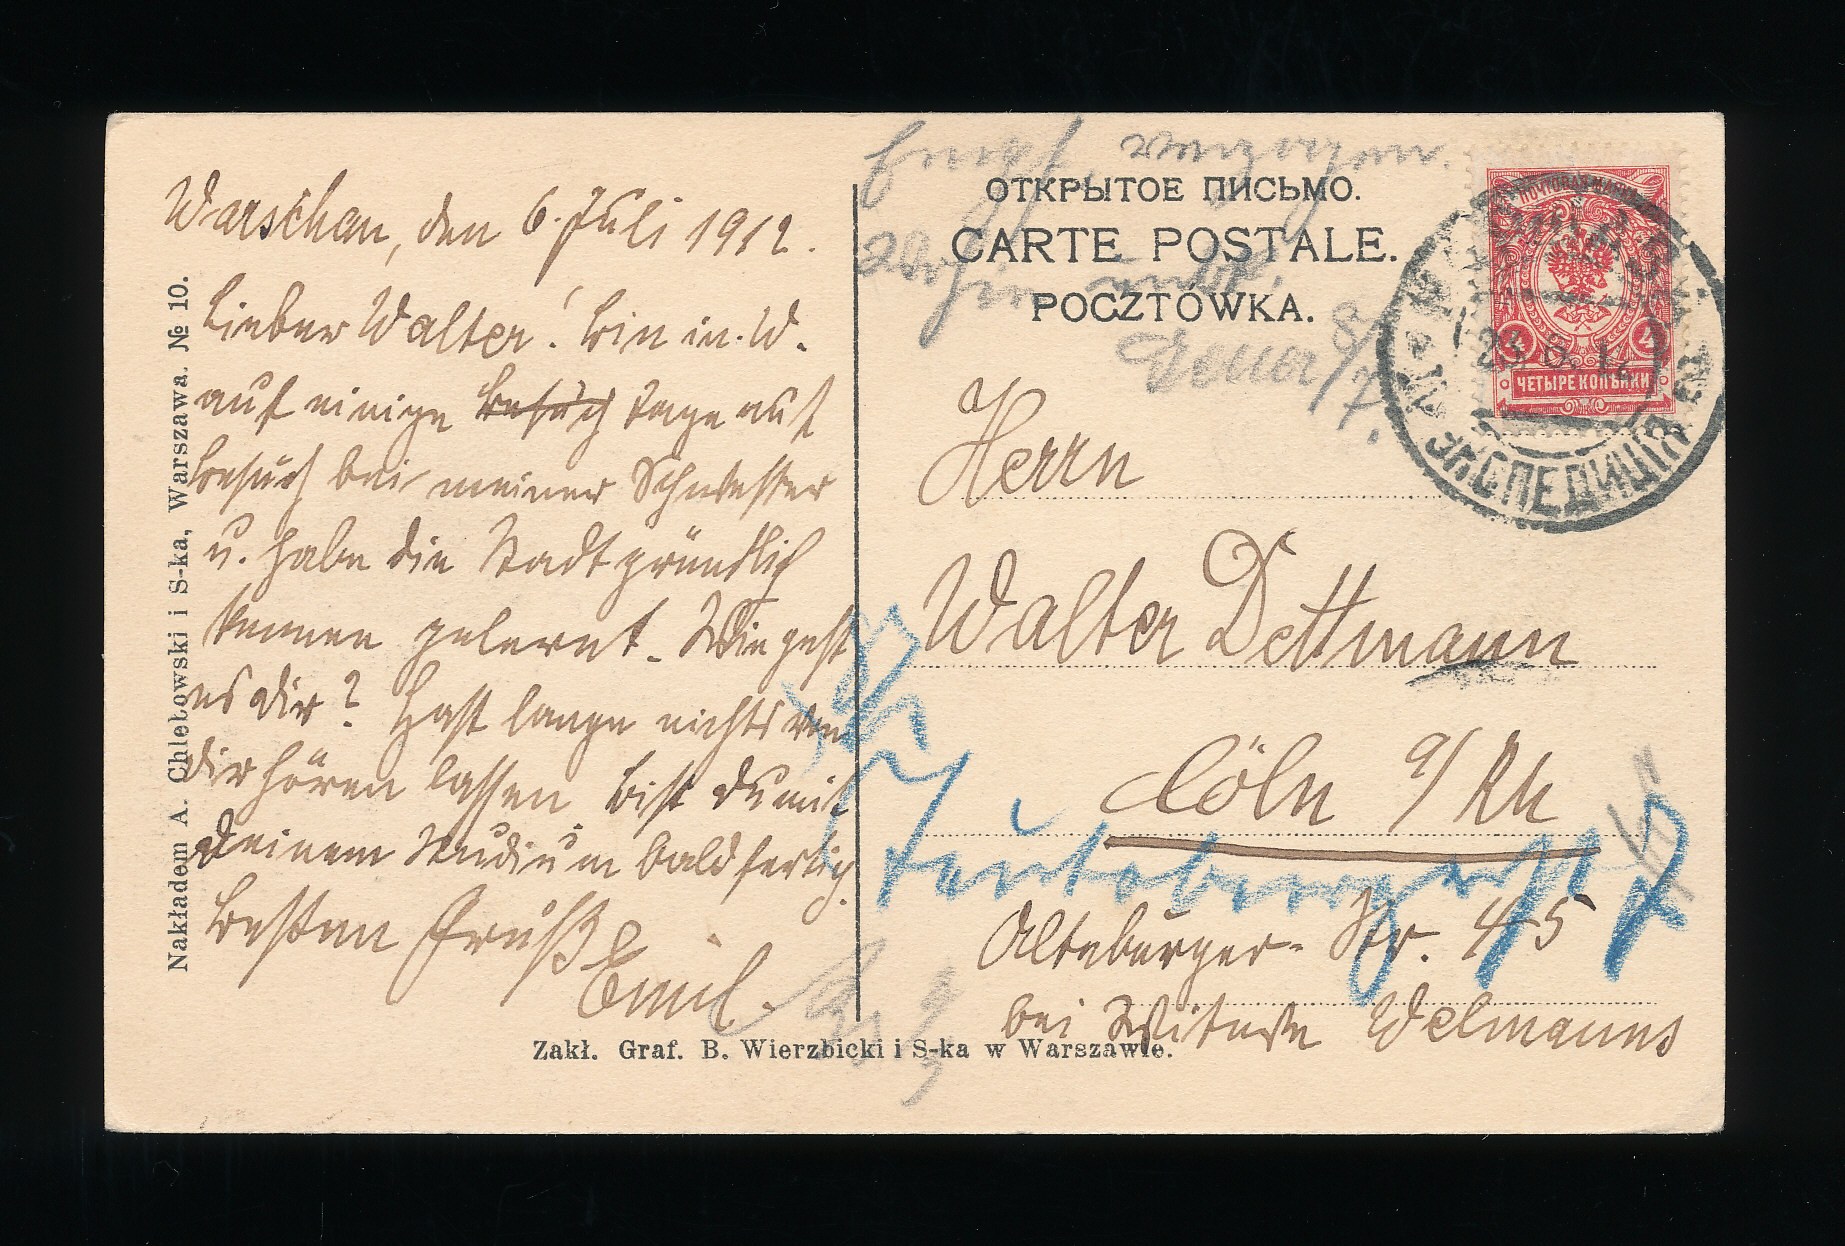 Warschau, den 6. Juli 1912.
Lieber Walter! bin in W.
auf einige Besuch Tage auf
Besuch bei meiner Schwester
u. habe die Stadt gründlich
kennen gelernt. Wie geht
es dir? Hast lange nichts von
dir hören lassen bist du mit
deinem Studium bald fertig.
Besten Grüße
Emil.
Nakładem A. Chlebowski i S-ka, Warszawa. № 10.
Zakł. Graf. B. Wierzbicki i S-ka w Warszawie.
Empf verzogen.
Wohin unbk.
8/7.
ОТКРЫТОЕ ПИСЬМО.
CARTE POSTALE.
POCZTÓWKA.
ПОЧТОВАЯ МАРКА
4 4
ЧЕТЫРЕ КОПѢЙКИ
23 6 12
ЭКСПЕДИЦІЯ
Herrn
Walter Dettmann
Cöln a/Rh
Teutoburgerst
Alteburger-Str. 45
bei Witwe Welmanns